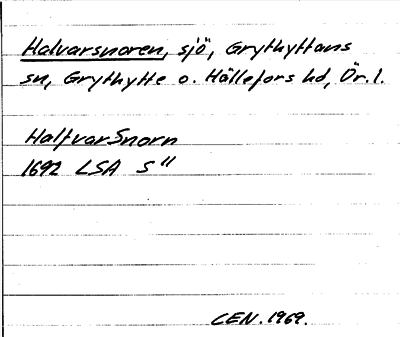 Halvarsnoren, sjö, Grythyttans
sn, Grythytte o. Hällefors hd, Ör. l.
HalfvarSnorn
1692 LSA S 11
CEN. 1969.